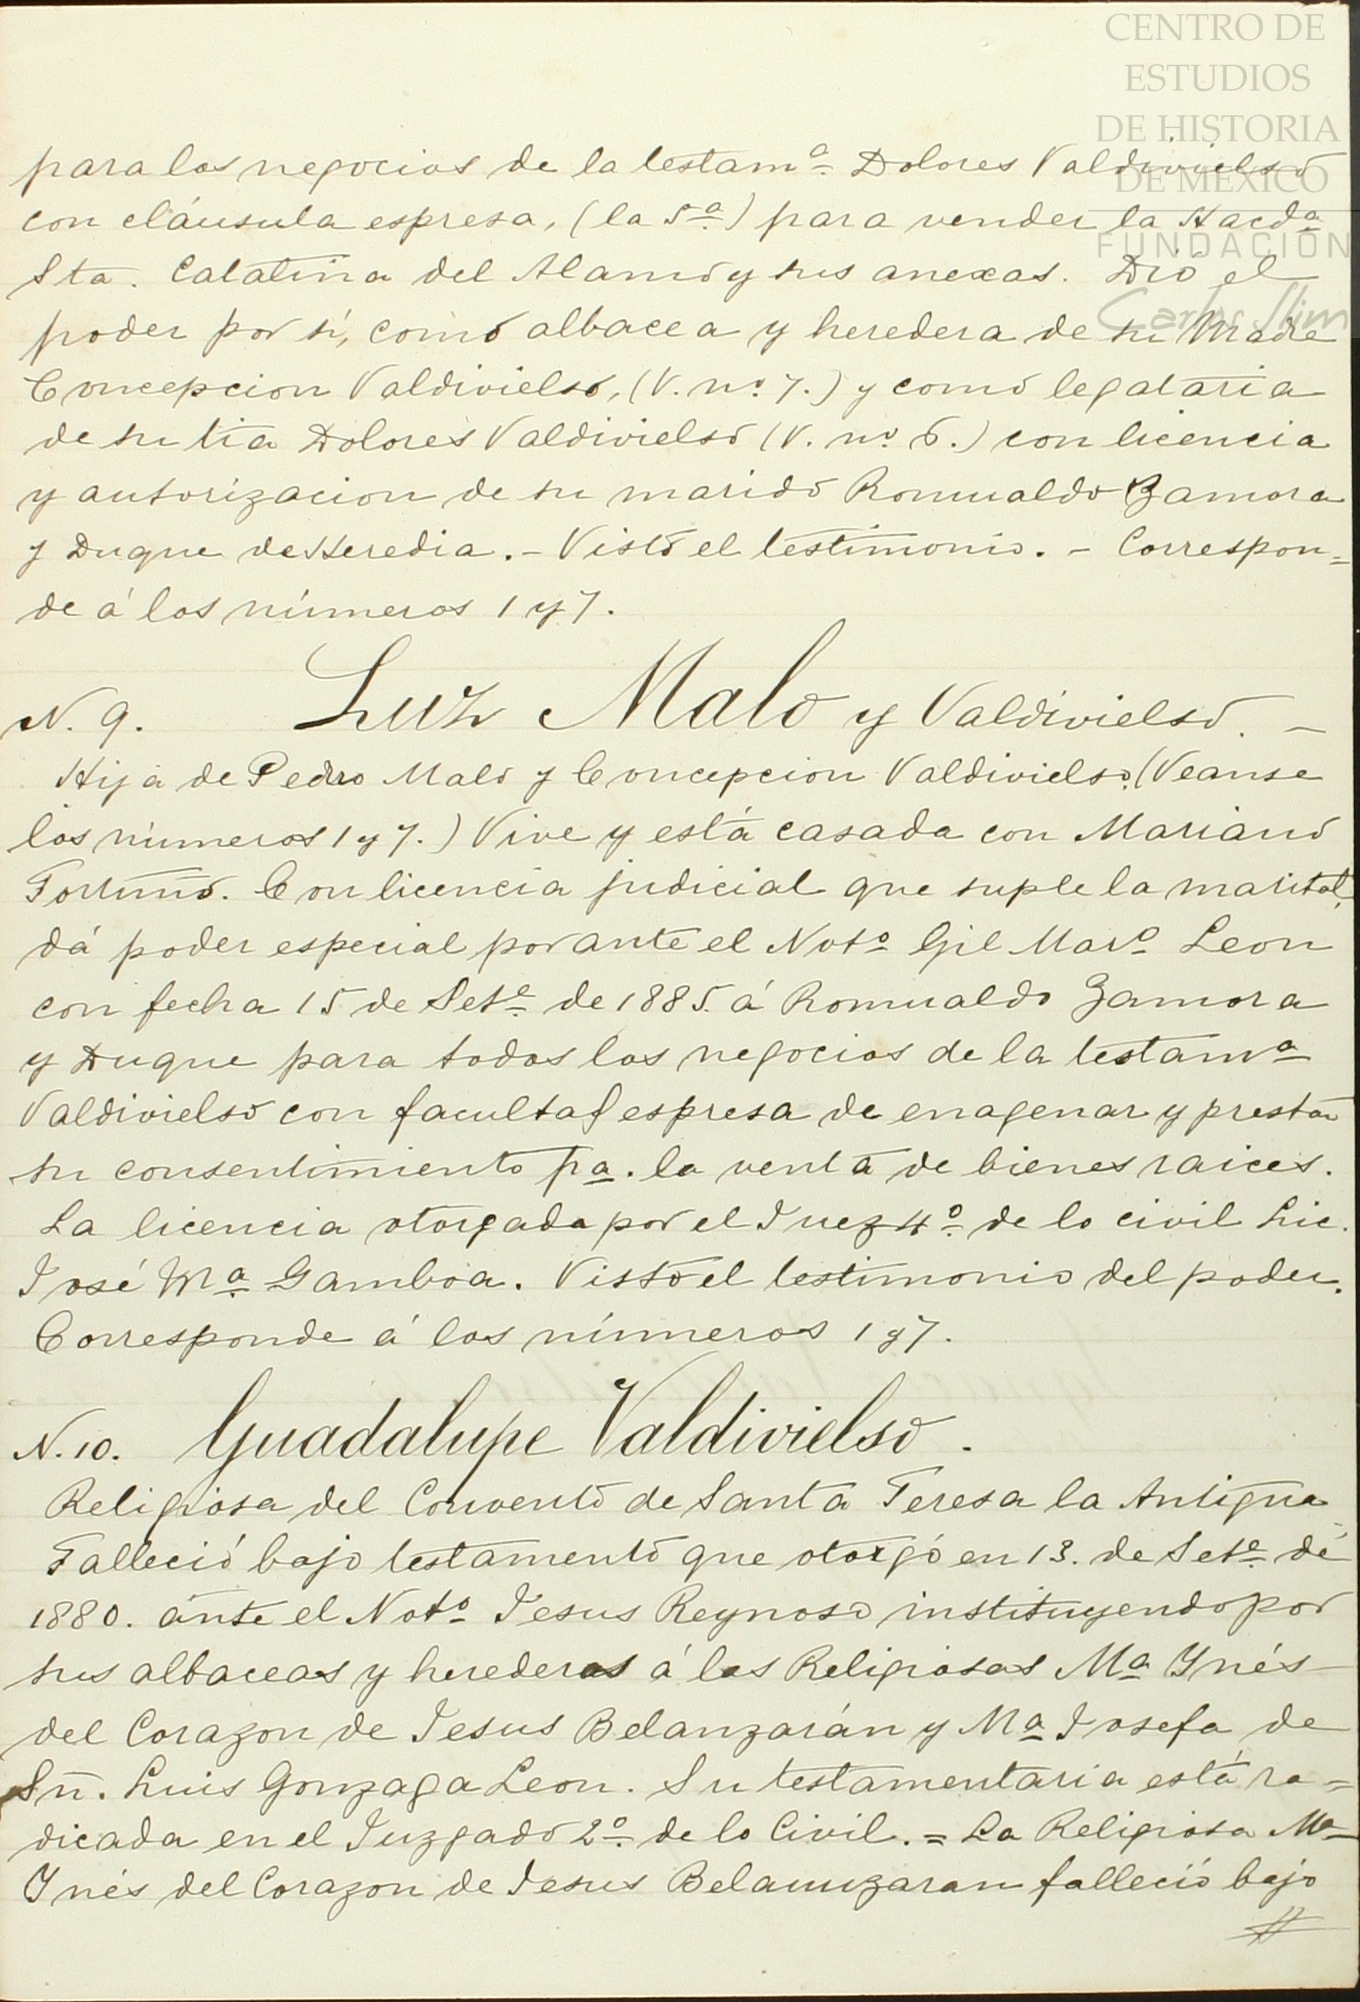 CENTRO DE
ESTUDIOS
DE HISTORIA
DE MÉXICO
FUNDACIÓN
Carlos Slim
para los negocios de la testamª Dolores Valdivielso
con cláusula espresa, (la 5ª) para vender la Hacdª
Sta. Catatina del Alamo y sus anexas. Dió el
poder por sí, como albacea y heredera de su Madre
Concepcion Valdivielso, (V. nº 7.) y como legataria
de su tia Dolores Valdivielso (V. nº 6.) con licencia
y autorizacion de su marido Romualdo Zamora
y Duque de Heredia. - Visto el testimonio. - Correspon=
de á los números 1 y 7.
N. 9. Luz Malo y Valdivielso. -
Hija de Pedro Malo y Concepcion Valdivielso. (Veanse
los números 1 y 7.) Vive y está casada con Mariano
Fortuño. Con licencia judicial que suple la marital,
dá poder especial por ante el Notº Gil Marº Leon
con fecha 15 de Setе de 1885. á Romualdo Zamora
y Duque para todos los negocios de la testamª
Valdivielso con facultad espresa de enagenar y prestar
su consentimiento pª. la venta de bienes raices.
La licencia otorgada por el Juez 4º de lo civil Lic.
José Mª Gamboa. Visto el testimonio del poder.
Corresponde á los números 1 y 7.
N. 10. Guadalupe Valdivielso.
Religiosa del Convento de Santa Teresa la Antigua
Falleció bajo testamento que otorgó en 13. de Sete de
1880. ante el Notº Jesus Reynoso instituyendo por
sus albaceas y herederas á las Religiosas Mª Ynés
del Corazon de Jesus Belanzarán y Mª Josefa de
Sn. Luis Gonzaga Leon. Su testamentaria está ra=
dicada en el Juzgado 2º de lo Civil. = La Religiosa Mª
Ynés del Corazon de Jesus Belaunzaran falleció bajo